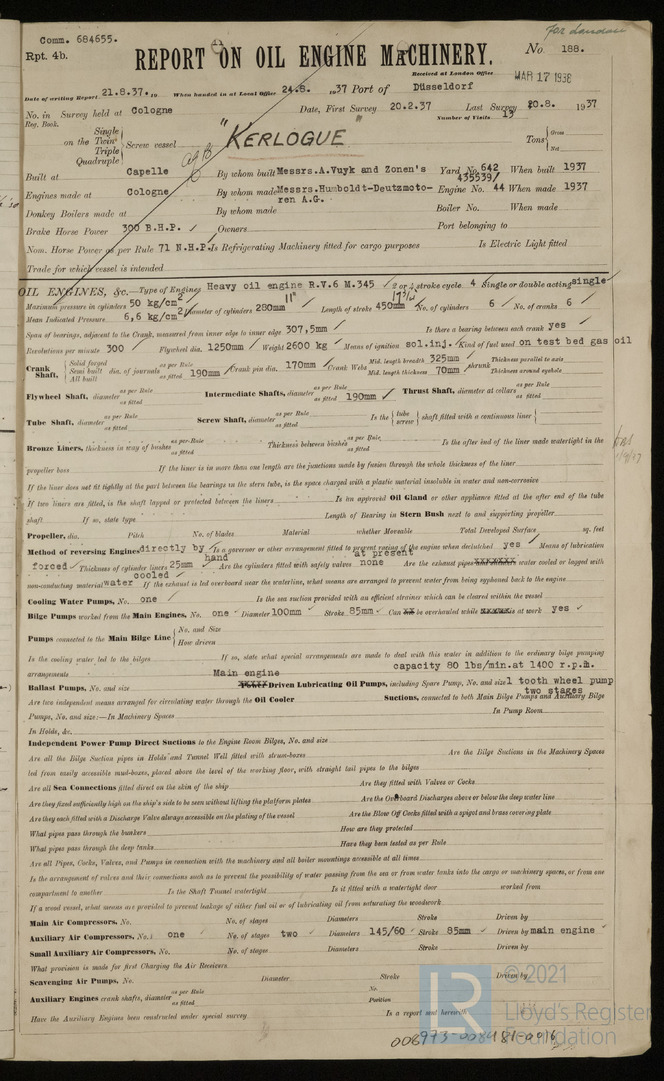 Comm. 684655.
For London
Rpt. 4b.
REPORT ON OIL ENGINE MACHINERY.
No 188.
Received at London Office
MAR 17 1938
Date of writing Report 21.8.37. 19 When handed in at Local Office 24.8. 1937 Port of Düsseldorf
No. in Reg. Book. Survey held at Cologne Date, First Survey 20.2.37 Last Survey 20.8. 1937
Number of Visits 13
Single
on the Twin
Triple
Quadruple
Screw vessel "KERLOGUE" Tons Gross
Net
Built at Capelle By whom built Messrs.A.Vuyk and Zonen's Yard No. 642 When built 1937
435539/
Engines made at Cologne By whom made Messrs.Humboldt-Deutzmoto- Engine No. 44 When made 1937
ren A.G.
Donkey Boilers made at By whom made Boiler No. When made
Brake Horse Power 300 B.H.P. ✓ Owners Port belonging to
Nom. Horse Power as per Rule 71 N.H.P. Is Refrigerating Machinery fitted for cargo purposes Is Electric Light fitted
Trade for which vessel is intended
OIL ENGINES, &c. Type of Engines Heavy oil engine R.V.6 M.345 ✓ 2 or 4 stroke cycle 4 Single or double acting single
Maximum pressure in cylinders 50 kg/cm2 Diameter of cylinders 280mm 11" Length of stroke 450mm No. of cylinders 6 No. of cranks 6
Mean Indicated Pressure 6,6 kg/cm2
Span of bearings, adjacent to the Crank, measured from inner edge to inner edge 307,5mm Is there a bearing between each crank yes
Revolutions per minute 300 Flywheel dia. 1250mm Weight 2600 kg Means of ignition sol.inj. Kind of fuel used on test bed gas oil
Crank Shaft, Solid forged Semi built All built dia. of journals as per Rule as fitted 190mm Crank pin dia. 170mm Crank Webs Mid. length breadth 325mm Mid. length thickness 70mm shrunk Thickness parallel to axis Thickness around eyehole
Flywheel Shaft, diameter as per Rule as fitted Intermediate Shafts, diameter as per Rule as fitted 190mm Thrust Shaft, diameter at collars as per Rule as fitted
Tube Shaft, diameter as per Rule as fitted Screw Shaft, diameter as per Rule as fitted Is the tube screw shaft fitted with a continuous liner
Bronze Liners, thickness in way of bushes as per Rule as fitted Thickness between bushes as per Rule as fitted Is the after end of the liner made watertight in the
propeller boss If the liner is in more than one length are the junctions made by fusion through the whole thickness of the liner
If the liner does not fit tightly at the part between the bearings in the stern tube, is the space charged with a plastic material insoluble in water and non-corrosive
If two liners are fitted, is the shaft lapped or protected between the liners Is an approved Oil Gland or other appliance fitted at the after end of the tube
shaft If so, state type Length of Bearing in Stern Bush next to and supporting propeller
Propeller, dia. Pitch No. of blades Material whether Moveable Total Developed Surface sq. feet
Method of reversing Engines directly by hand Is a governor or other arrangement fitted to prevent racing of the engine when declutched yes Means of lubrication
forced Thickness of cylinder liners 25mm Are the cylinders fitted with safety valves at present none Are the exhaust pipes water cooled or lagged with
non-conducting material water cooled If the exhaust is led overboard near the waterline, what means are arranged to prevent water from being syphoned back to the engine
Cooling Water Pumps, No. one Is the sea suction provided with an efficient strainer which can be cleared within the vessel
Bilge Pumps worked from the Main Engines, No. one Diameter 100mm Stroke 85mm Can be overhauled while is at work yes
Pumps connected to the Main Bilge Line No. and Size
How driven
Is the cooling water led to the bilges If so, state what special arrangements are made to deal with this water in addition to the ordinary bilge pumping
arrangements capacity 80 lbs/min.at 1400 r.p.m.
Ballast Pumps, No. and size Main engine Driven Lubricating Oil Pumps, including Spare Pump, No. and size 1 tooth wheel pump
two stages
Are two independent means arranged for circulating water through the Oil Cooler Suctions, connected to both Main Bilge Pumps and Auxiliary Bilge
Pumps, No. and size:—In Machinery Spaces In Pump Room
In Holds, &c.
Independent Power Pump Direct Suctions to the Engine Room Bilges, No. and size
Are all the Bilge Suction pipes in Holds and Tunnel Well fitted with strum-boxes Are the Bilge Suctions in the Machinery Spaces
led from easily accessible mud-boxes, placed above the level of the working floor, with straight tail pipes to the bilges
Are all Sea Connections fitted direct on the skin of the ship Are they fitted with Valves or Cocks
Are they fixed sufficiently high on the ship's side to be seen without lifting the platform plates Are the Overboard Discharges above or below the deep water line
Are they each fitted with a Discharge Valve always accessible on the plating of the vessel Are the Blow Off Cocks fitted with a spigot and brass covering plate
What pipes pass through the bunkers How are they protected
What pipes pass through the deep tanks Have they been tested as per Rule
Are all Pipes, Cocks, Valves, and Pumps in connection with the machinery and all boiler mountings accessible at all times
Is the arrangement of valves and their connections such as to prevent the possibility of water passing from the sea or from water tanks into the cargo or machinery spaces, or from one
compartment to another Is the Shaft Tunnel watertight Is it fitted with a watertight door worked from
If a wood vessel, what means are provided to prevent leakage of either fuel oil or of lubricating oil from saturating the woodwork
Main Air Compressors, No. No. of stages Diameters Stroke Driven by
Auxiliary Air Compressors, No. one No. of stages two Diameters 145/60 Stroke 85mm Driven by main engine
Small Auxiliary Air Compressors, No. No. of stages Diameters Stroke Driven by
What provision is made for first Charging the Air Receivers
Scavenging Air Pumps, No. Diameter Stroke Driven by
Auxiliary Engines crank shafts, diameter as per Rule as fitted No. Position
Have the Auxiliary Engines been constructed under special survey Is a report sent herewith
© 2021
Lloyd's Register
Foundation
008973-008981-0016